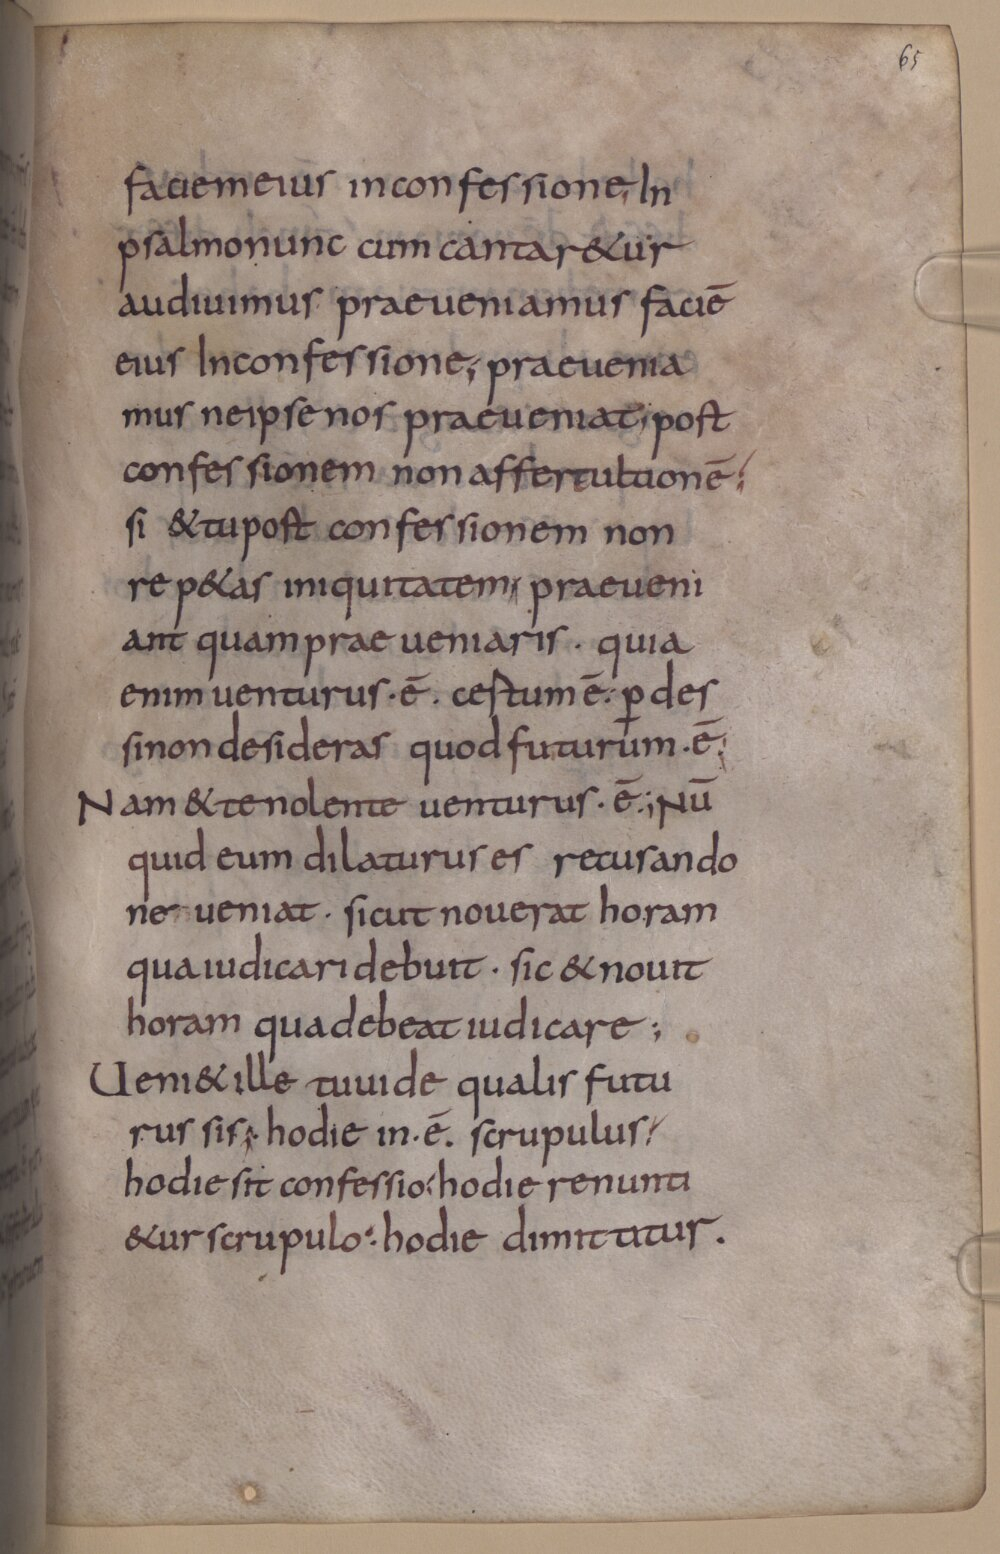 65
faciem eius in confessione; In
psalmo nunc cum cantar&ur
audiuimus praeueniamus faciē
eius In confessione; praeuenia
mus ne ipse nos praeueniat; post
confessionem non affert ultionē;
si & tu post confessionem non
rep&as iniquitatem; praeueni
ant quam praeueniaris · quia
enim uenturus · ē · cestum ē · p des
si non desideras quod futurum · ē;
Nam & te nolente uenturus · ē; Nū
quid eum dilaturus es recusando
ne ueniat · sicut nouerat horam
qua iudicari debuit · sic & nouit
horam qua debeat iudicare;
Ueni& ille tu uide qualis futu
rus sis; hodie in · ē · scrupulus
hodie sit confessio hodie renunti
&ur scrupulo · hodie dimittitur.